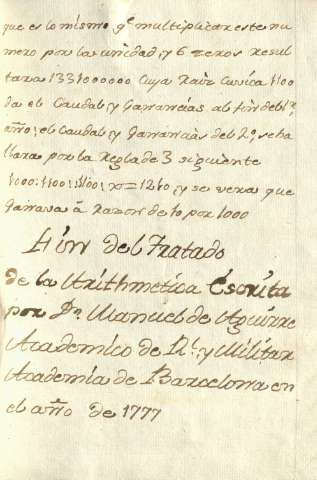 que es lo mismo qe multiplicar este nu
mero por la unidad, y 6 zeros resul
tara 1331000000 cuya raiz cuvica 1100
da el Caudal, y Ganancias al fin del 1r
año; el Caudal, y Ganancias del 2o, se ha
llara por la Regla de 3 siguiente
1000:1100::1100:x=1210, y se vera que
Ganava á razon de 10 por 1000
Fin del Tratado
de la Arithmetica Escrita
por Dn Manuel de Aguirre
Academico de Rl. y Militar
Academia de Barcelona en
el año de 1777